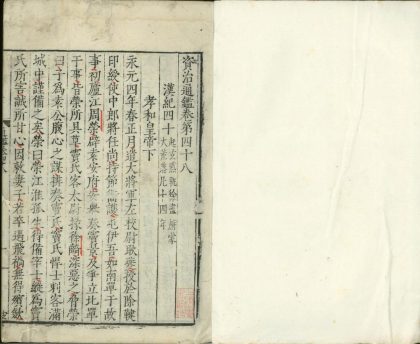 資治通鑑卷第四十八
漢紀四十
孝和皇帝下
永元四年春正月遣大將軍左校尉耿夔授於除鞬
印綬使中郎將任尚持節衛護屯伊吾如南單于故
事初廬江周榮辟袁安府安舉奏竇景及爭立北單
于事皆榮所具草竇氏客太尉掾徐齮深惡之脅榮
曰子為袁公腹心之謀排奏竇氏竇氏悍士刺客滿
城中謹備之矣榮曰榮江淮孤生得備宰士縱為竇
氏所害誠所甘心因敕妻子若卒遇飛禍無得殯斂